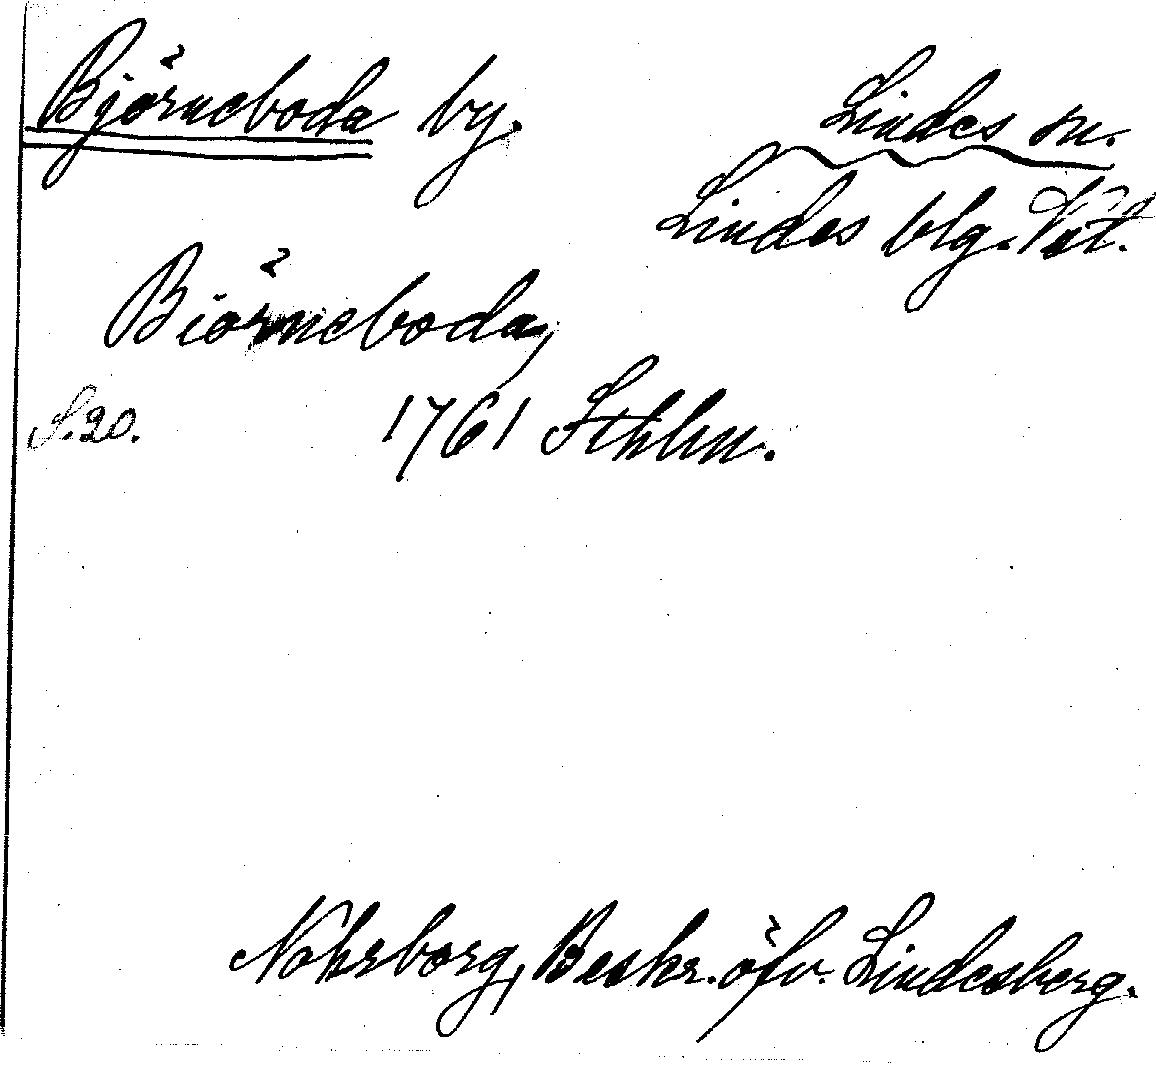 Björneboda by.
Lindes sn.
Lindes blg. Vst.
Biörneboda,
S. 20.
1761 Sthlm.
Nohrborg, Beskr. öfv. Lindesberg.